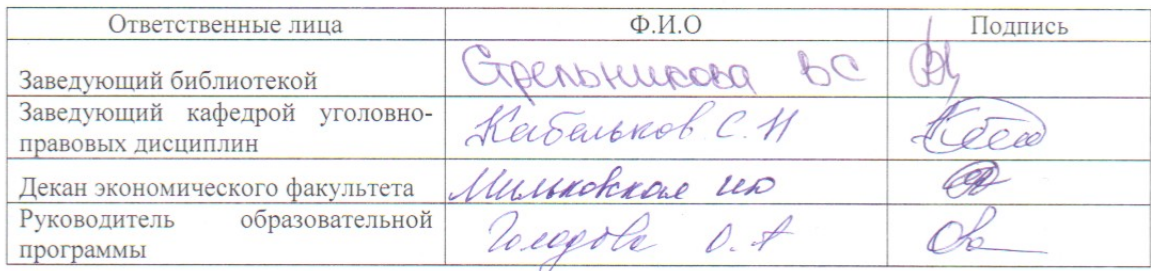 Ответственные лица Ф.И.О Подпись
Заведующий библиотекой Стрельникова ВС
Заведующий кафедрой уголовно-
правовых дисциплин Кабельков С.Н
Декан экономического факультета Мильковская ИЮ
Руководитель образовательной
программы О.А